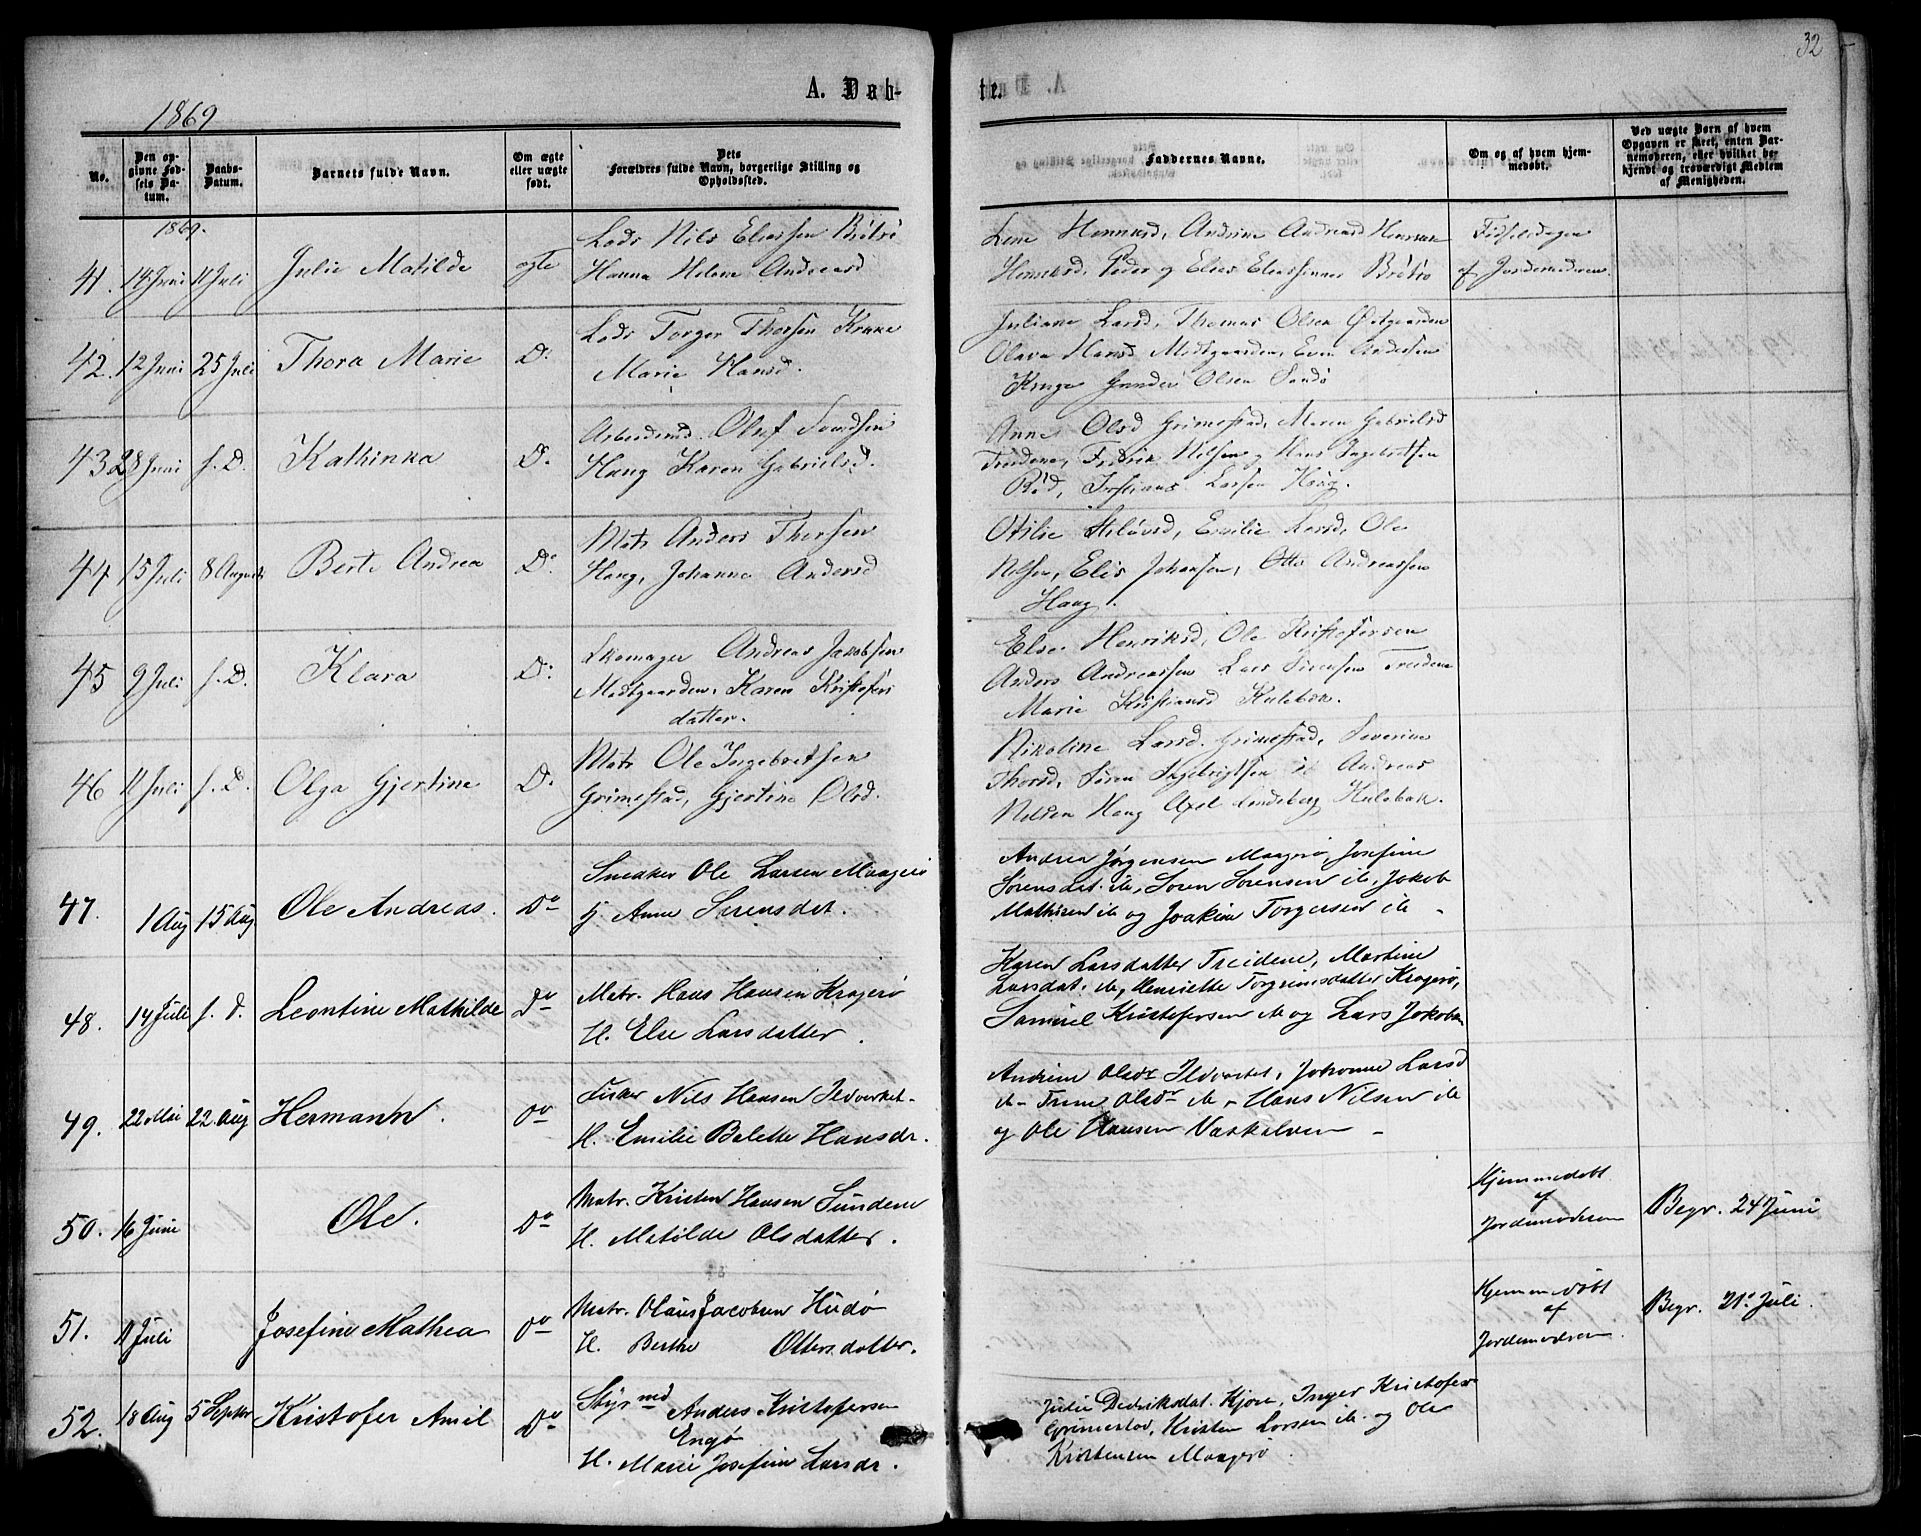 32
A. Døb-
te.
1869
No.
Den op-
givne Fød-
sels Da-
tum.
Daabs-
Datum.
Barnets fulde Navn.
Om ægte
eller uægte
født.
Dets
Forældres fulde Navn, borgerlige Stilling og
Opholdssted.
Faddernes Navne.
Om og af hvem hjem-
medøbt.
Ved uægte Børn af hvem
Opgaven er skeet, enten Bar-
nemoderen, eller hvilket be-
kjendt og troværdigt Medlem
af Menigheden.
1869.
41. 14 Juni 11 Juli Julie Matilde ægte
Lods Nils Eliassen Brötsö
Hanna Helene Andreasd
Lene Henriksd, Andrine Andreasd
Henriksd, Peder og Elias Eliassenner Brötsö
Födselsdagen
af Jordemoderen
42. 12 Juni 25 Juli Thora Marie D:
Lods Torger Thorsen Kruke
Marie Hansd.
Juliane Larsd, Thomas Olsen Østgaarden
Olava Hansd Medtgaarden, Even Andersen
Kruge Gunder Olsen Sandö
43. 28 Juni s. D. Kathinka D.
Arbeidsmd. Oluf Svendsen
Haug Karen Gabrielsd.
Anne Olsd Grimestad, Maren Gabrielsd
Treidene, Fredrik Nilsen og Hans Ingebretsen
Röd, Larsen Haug.
44. 15 Juli 8 August Berte Andrea D:
Mats Anders Thorsen
Haug, Johanne Andersd
Otilie Emilie Larsd, Ole
Nilsen, Elis Johansen, Otto Andreassen
Haug.
45 9 Juli s. D. Klara D:
Skomager Andreas Jakobsen
Medtgaarden, Karen Kristofers
datter.
Else Henriksd, Ole Kristofersen
Anders Andreassen Lars Treidene
Marie Kristiansd Kulebæk.
46 11 Juli s. D. Olga Gjertine D.
Mats Ole Ingebretsen
Grimestad, Gjertine Olsd.
Nikoline Larsd. Grimestad, Severine
Thorsd, Sören Ingebrigtsen Andreas
Nilsen Haug Axel Lindeberg Kulebæk.
47 1 Aug 15 Aug. Ole Andreas. Do
Snedker Ole Larsen Maagerö
Hj. Anne Sørensdat.
Andrea Jørgensen Maagerö, Josefine
Sørensdat. do, Soren Sorensen do. Jakob
Mathisen do og Joakim Torgersen do -
48. 14 Juli s. d. Leontine Mathilde Do
Matr. Hans Hansen Kragerö
H. Else Larsdatter.
Karen Larsdatter Treidene, Martine
Larsdat. do, Henriette Torgrimsdatter Kragerö,
Samuel Kristofersen do og Lars Jokobsen
49. 22 Mai 22. Aug Hermann. Do
Fisker Nils Hansen Ildverket -
H. Emilie Bolette Hansdr.
Andrine Olsdr Ildverket, Johanne Larsd
do - Trine Olsdr do - Hans Nilsen do
og Ole Hansen Vaskalven -
50. 16 Juni Ole. Do
Matr. Kristen Hansen Sundene
H. Matilde Olsdatter.
Hjemmedøbt
af
Jordemoderen
Begr. 24 Juni
51. 11 Juli Josefine Mathea Do
Matr. Olaus Jacobsen Hudö
H. Berthe Ottersdatter.
Hjemmedøbt
af
Jordemoderen
Begr. 21. Juli.
52. 18 Aug 5 Septbr Kristofer Amil Do
Styrmd Anders Kristofersen
Engö
H. Marie Josefine Larsdr.
Julie Dedriksdat. Kjøre, Inger Kristofers-
Grimestad, Kristen Larsen do. og Ole
Kristensen Maagerö.